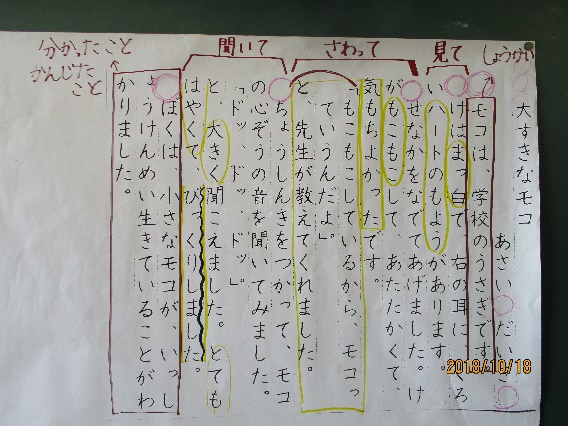 しょうかい
見て
さわって
聞いて
分かったこと
かんじた
こと
大すきなモコ
あさい だいき
モコは、学校のうさぎです。
けは、まっ白で、右の耳に
いハートのもようがあります。
せなかをなでてあげました。け
がもこもこして、あたたかくて、
気もちよかったです。
「もこもこしているから、モコっ
ていうんだよ」。
と、先生が教えてくれました。
ちょうしんきをつかって、モコ
の心ぞうの音を聞いてみました。
「ドッ、ドッ、ドッ」。
と、大きく聞こえました。とても
はやくて、びっくりしました。
ぼくは、小さなモコが、いっし
ょうけんめい生きていることがわ
かりました。
2019/10/18